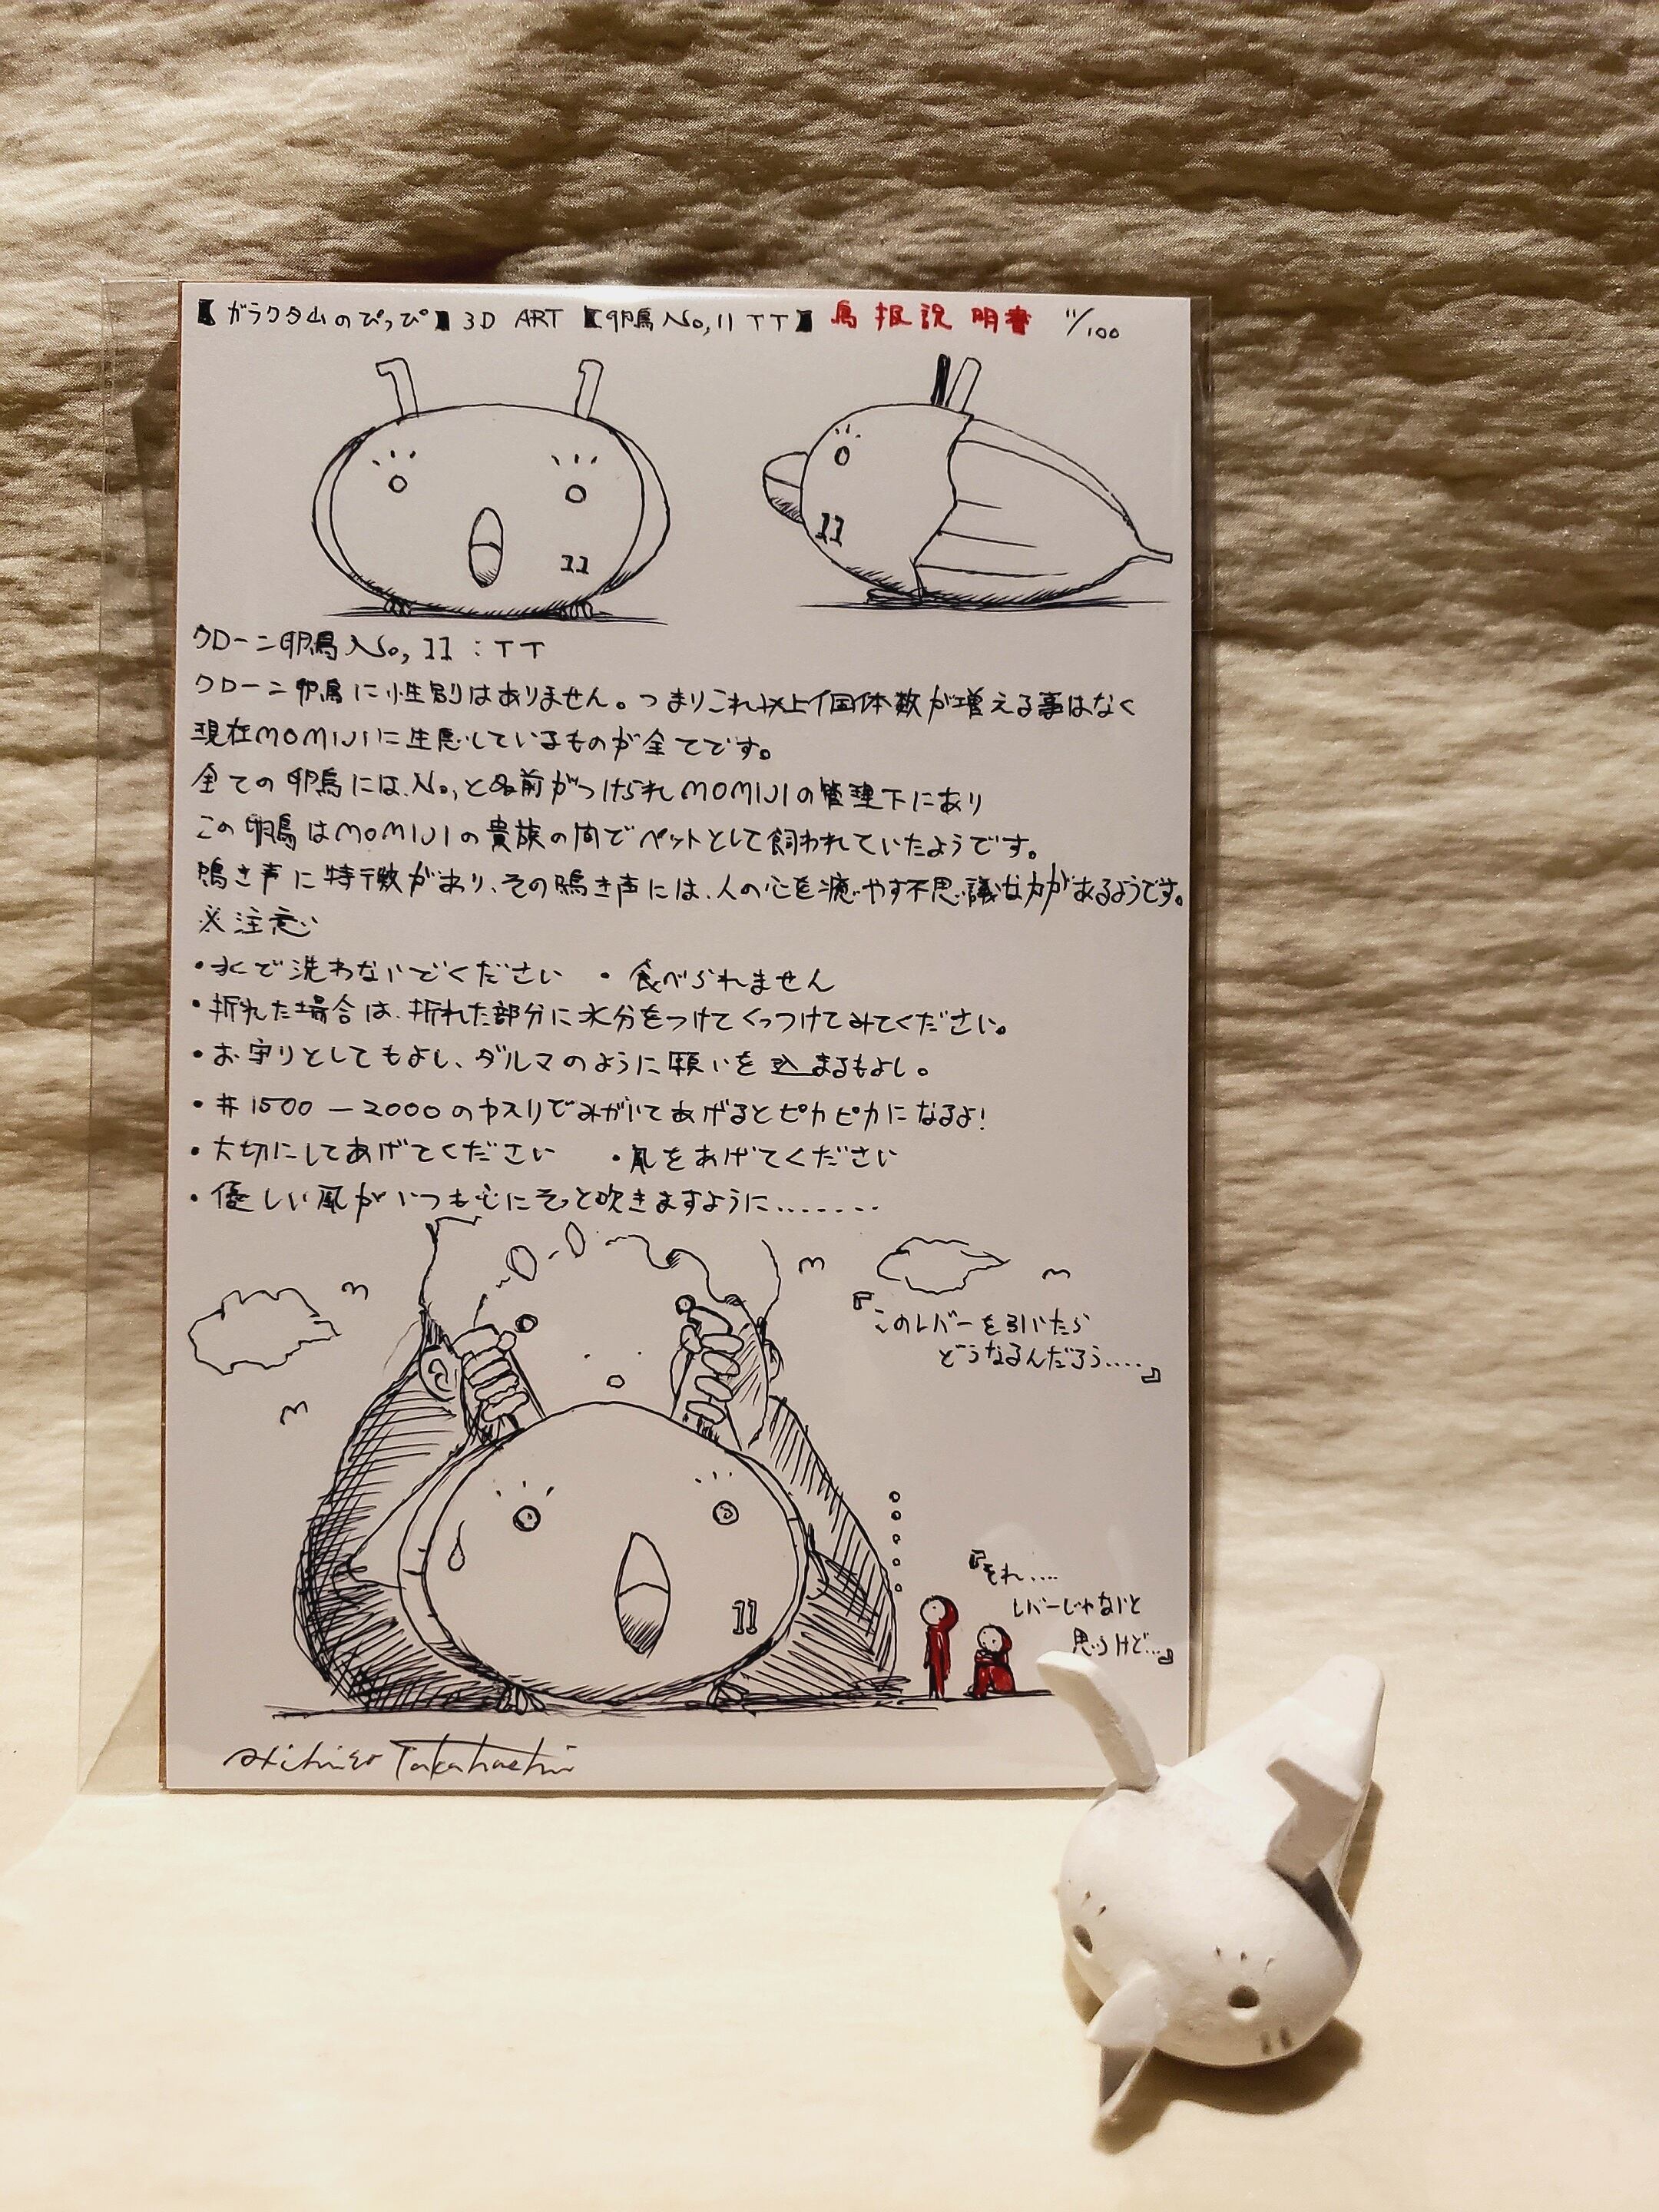 【ガラクタ山のぴっぴ】3D ART【卵鳥No,11 TT】鳥扱説明書 11/100
11
11
クローン卵鳥No, 11 : TT
クローン卵鳥に性別はありません。つまりこれ以上個体数が増える事はなく
現在MOMIJIに生息しているものが全てです。
全ての卵鳥には、No,と名前がつけられMOMIJIの管理下にあり
この卵鳥はMOMIJIの貴族の間でペットとして飼われていたようです。
鳴き声に特徴があり、その鳴き声には、人の心を癒やす不思議な力があるようです。
※注意
・水で洗わないでください ・食べられません
・折れた場合は、折れた部分に水分をつけてくっつけてみてください。
・お守りとしてもよし、ダルマのように願いを込まるもよし。
・#1500－2000のヤスリでみがいてあげるとピカピカになるよ!
・大切にしてあげてください ・風をあげてください
・優しい風がいつも心にそっと吹きますように.......
『このレバーを引いたら
どうなるんだろう.....』
11
『それ....
レバーじゃないと
思うけど...』
Akihiro Takahashi
11